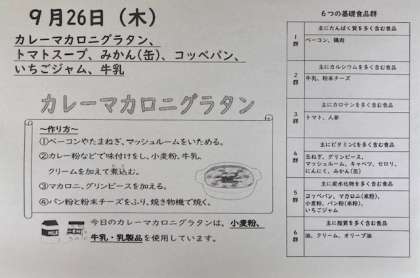 9月26日（木）
カレーマカロニグラタン、
トマトスープ、みかん(缶)、コッペパン、
いちごジャム、牛乳
カレーマカロニグラタン
～作り方～
①ベーコンやたまねぎ、マッシュルームをいためる。
②カレー粉などで味付けをし、小麦粉、牛乳、
クリームを加えて煮込む。
③マカロニ、グリンピースを加える。
④パン粉と粉末チーズをふり、焼き物機で焼く。
今日のカレーマカロニグラタンは、小麦粉、
牛乳・乳製品を使用しています。
6つの基礎食品群
主にたんぱく質を多く含む食品
1群
ベーコン、鶏肉
主にカルシウムを多く含む食品
2群
牛乳、粉末チーズ
主にカロテンを多く含む食品
3群
トマト、人参
主にビタミンCを多く含む食品
群
玉ねぎ、グリンピース、
マッシュルーム、キャベツ、セロリ、
にんにく、みかん(缶)
主に炭水化物を多く含む食品
5群
コッペパン、マカロニ(米粉)、
小麦粉、パン粉(米粉)、
いちごジャム
主に脂質を多く含む食品
6群
油、クリーム、オリーブ油